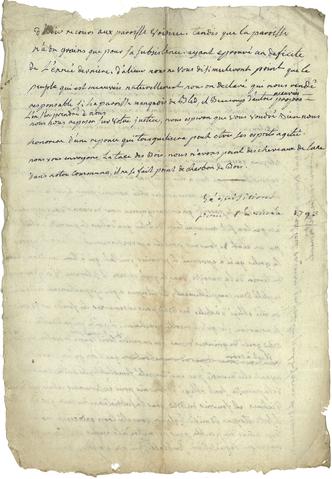 d'avoir recours aux paroisse voisine, tandis que la paroisse
n'a du grains que pour sa subsistance ayant eprouvé un deficite
de l'année derniere, d'alieur nous ne vous disimuleront point que le
peuple qui est mauvais naturellement nous on declaré qui nous rendé
responsable si la paroisse manquois de Bled, et Beaucoup d'autres propos
nous nous reposon sur votre justice, nous esperon que vous voudré Bien nous
honnorer d'un reponce qui tranquilisera peut etre ces esprits agité
nous vous envoyons la taxe des Bois, nous n'avons point des chevaux de luxe
dans notre commune, il ne se fait point de charbon de Bois.
1793